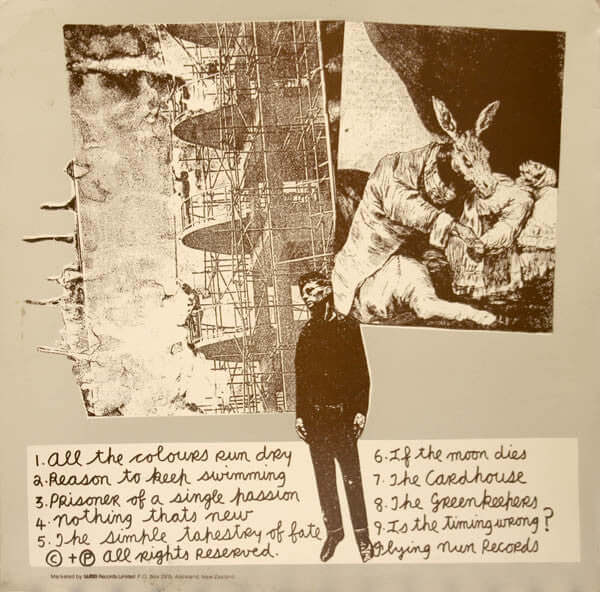 1. All the colours run dry
2. Reason to keep swimming
3. Prisoner of a single passion
4. Nothing thats new
5. The simple tapestry of fate
© + ℗ All rights reserved.
6. If the moon dies
7. The Cardhouse
8. The Greenkeepers
9. Is the timing wrong?
Flying Nun Records
Marketed by Records Limited P.O. Box Auckland, New Zealand